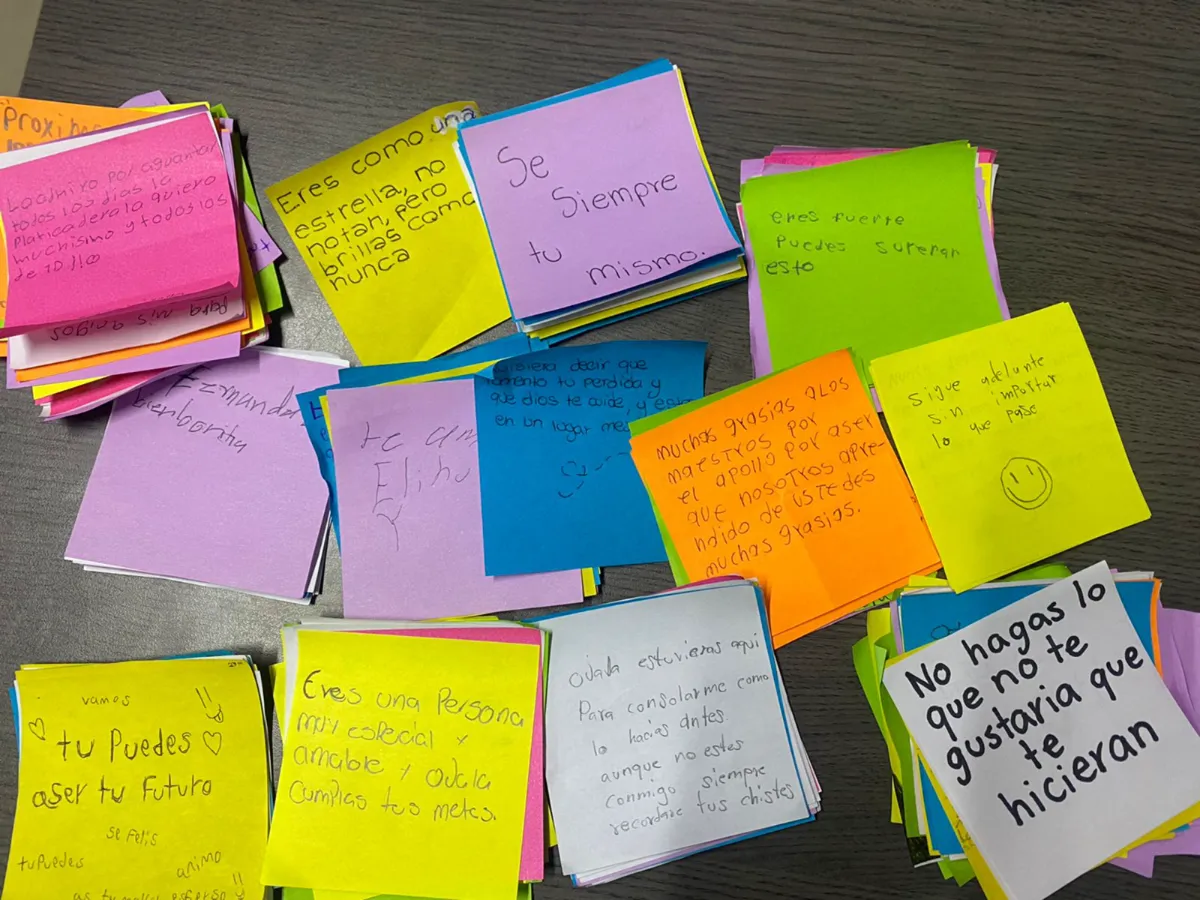 Proxi
Loadmiro por aguantar
todos los dias la
Platicadera lo quiero
muchismo y todos los
de 7D llo
Para mis amigos
Eres como una
estrella, no
notan, pero
brillas como
nunca
Se
Siempre
tu
mismo.
eres fuerte
Puedes superar
esto
Ezmundar
bienborita
te am
Elihu
Y
decir que
tu perdida y
que dios te cuide, y
en un lugar
muchas grasias alos
maestros por
el apollo por aser
que nosotros apre-
ndido de ustedes
muchas grasias.
sigue adelante
sin importar
lo que pase
vamos
tu Puedes
aser tu Futuro
se Felis
tu Puedes
animo
Eres una Persona
muy especial y
amable y ojala
cumplas tus metas.
Ojala estuvieras aqui
Para consolarme como
lo hacias antes.
aunque no estes
conmigo siempre
recordare tus chistes
No hagas lo
que no te
gustaria que
te
hicieran